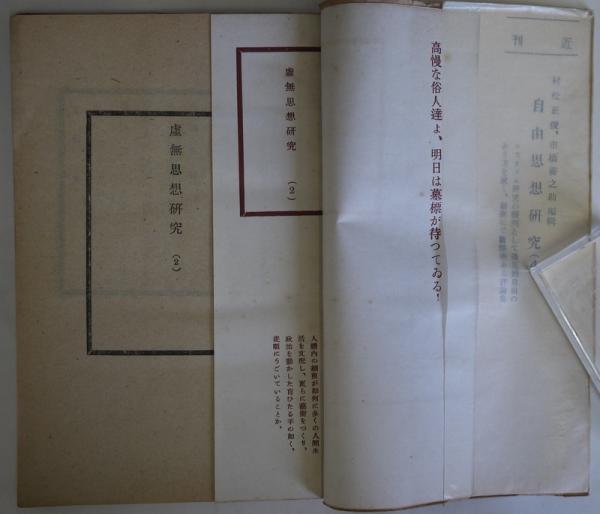 近刊
村松正俊、市橋善之助編輯
自由思想研究
高慢な俗人達よ、明日は墓標が待つてゐる!
虚無思想研究
(2)
人體内の細菌が如何に多くの人間生
活を支配し、更らに藝術をつくり、
政治を動かした盲ひたる手の如く、
悲願にうごいていることか。
虚無思想研究
(2)